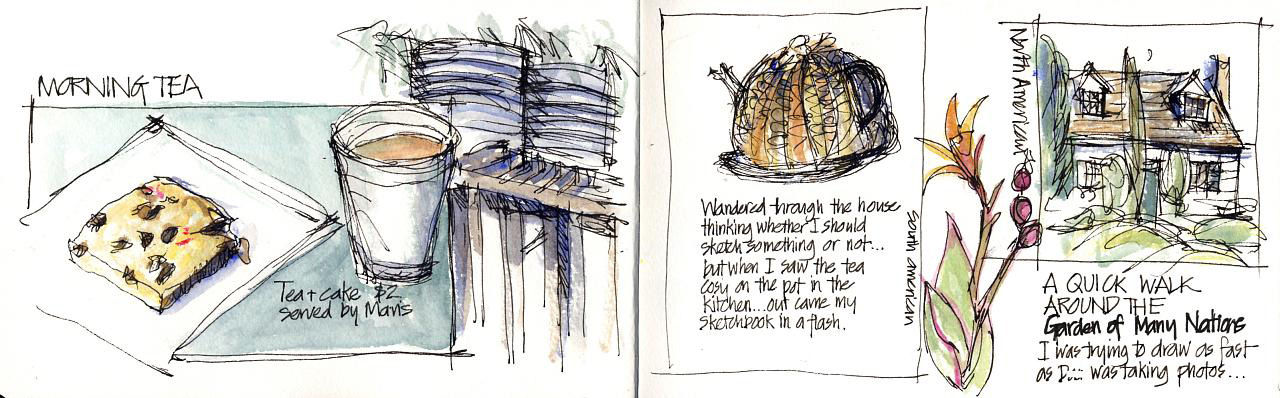 MORNING TEA
Tea + cake $2
served by Mavis
Wandered through the house
thinking whether I should
sketch something or not...
but when I saw the tea
cosy on the pot in the
kitchen...out came my
sketchbook in a flash.
South American
North American
A QUICK WALK
AROUND THE
Garden of Many Nations
I was trying to draw as fast
as was taking photos...